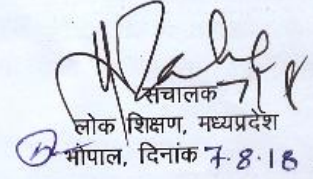 संचालक
लोक शिक्षण, मध्यप्रदेश
भोपाल, दिनांक 7.8.18